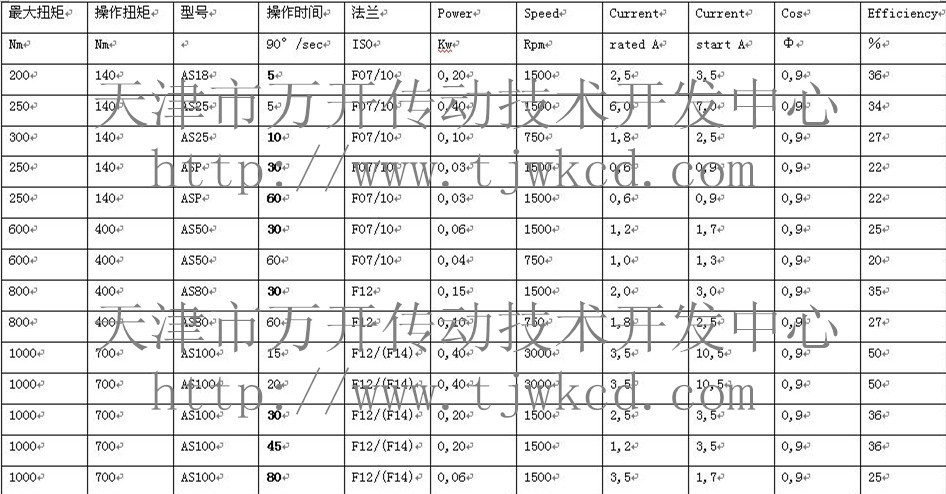 最大扭矩 操作扭矩 型号 操作时间 法兰 Power Speed Current Current Cos Efficiency
Nm Nm 90° /sec ISO Kw Rpm rated A start A Φ %
200 140 AS18 5 F07/10 0,20 1500 2,5 3,5 0,9 36
250 140 AS25 5 F07/10 0,40 1500 6,0 7,0 0,9 34
天津市万开传动技术开发中心
300 140 AS25 10 F07/10 0,10 750 1,8 2,5 0,9 27
250 140 ASP 30 F07/10 0,03 1500 0,6 0,9 0,9 22
http://www.tjwkcd.com
250 140 ASP 60 F07/10 0,03 1500 0,6 0,9 0,9 22
600 400 AS50 30 F07/10 0,06 1500 1,2 1,7 0,9 25
600 400 AS50 60 F07/10 0,04 750 1,0 1,3 0,9 20
800 400 AS80 30 F12 0,15 1500 2,0 3,0 0,9 35
800 400 AS80 60 F12 0,10 750 1,8 2,5 0,9 27
天津市万开传动技术开发中心
1000 700 AS100 15 F12/(F14) 0,40 3000 3,5 10,5 0,9 50
1000 700 AS100 20 F12/(F14) 0,40 3000 3,5 10,5 0,9 50
http://www.tjwkcd.com
1000 700 AS100 30 F12/(F14) 0,20 1500 2,5 3,5 0,9 36
1000 700 AS100 45 F12/(F14) 0,20 1500 1,2 3,5 0,9 36
1000 700 AS100 80 F12/(F14) 0,06 1500 3,5 1,7 0,9 25